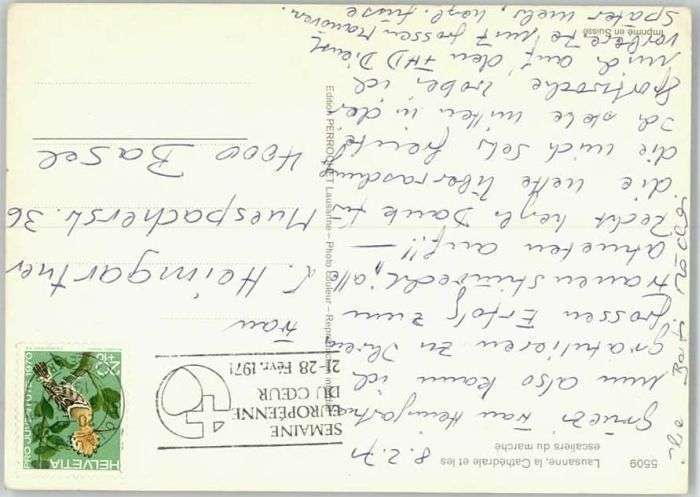 5509 Lausanne, la Cathédrale et les
escaliers du marché
8.2.71
Grüezi Frau Heimgartner
nun also kann ich
gratulieren zu Ihrem
grossen Erfolg zum
Frauenstimmrecht, "alle
atmeten auf!! —
Recht herzl. Dank für
die nette Überraschung
die mich sehr freute.
Ich stehe mitten in der
Sportwoche wobei ich
mich auf den FHD Dienst
vorbereite mit grossen Manövern.
Später mehr, herzl. Grüsse
Edition PERROCHET Lausanne – Photo couleur – Reproduction interdite
Imprimé en Suisse
SEMAINE
EUROPÉENNE
DU CŒUR
21-28 Févr. 1971
PRO JUVENTUTE 1970
20+10
HELVETIA
Frau
L. Heimgartner
Muespacherstr. 36
4000 Basel